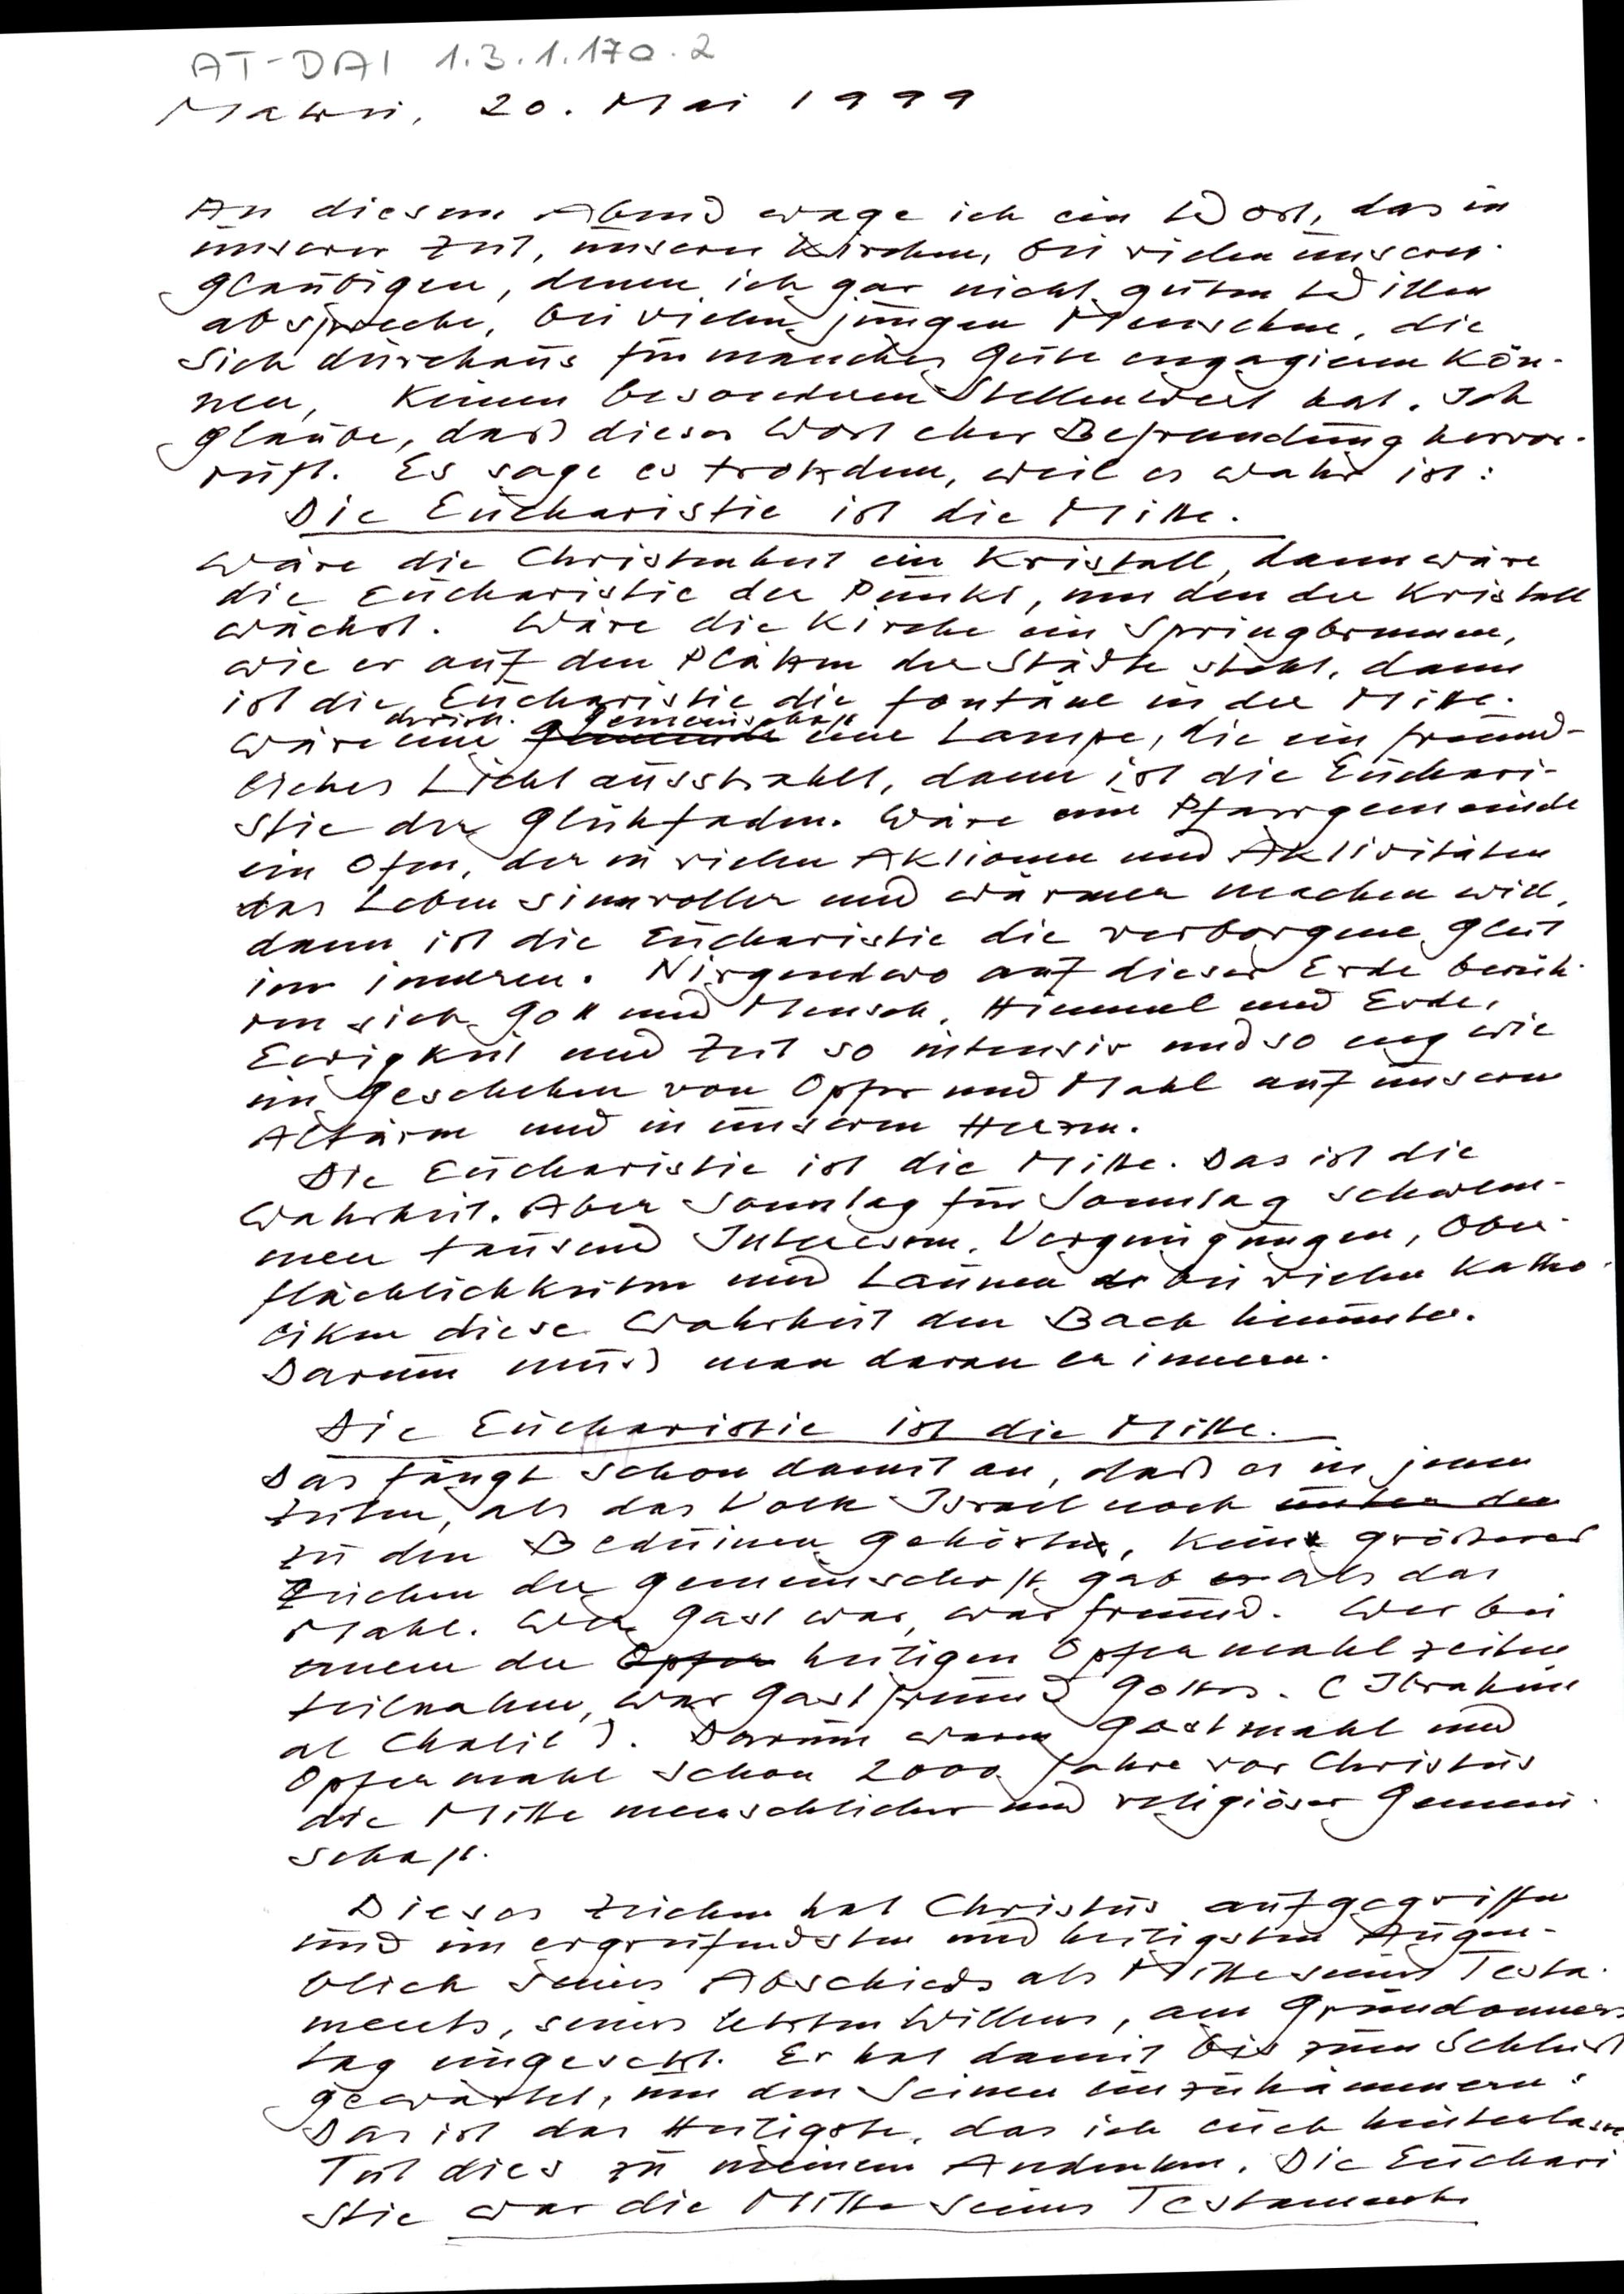 AT-DAI 1.3.1.170.2
Matrei, 20. Mai 1999
An diesem Abend wage ich ein Wort, das in
unserer Zeit, unseren Kirchen, bei vielen unserer
Gläubigen, denen ich gar nicht guten Willen
abspreche, bei vielen jungen Menschen, die
sich durchaus für manches Gute engagieren kön-
nen, keinen besonderen Stellenwert hat. Ich
glaube, dass dieses Wort eher Befremdung hervor-
ruft. Es sage es trotzdem, weil es wahr ist:
Die Eucharistie ist die Mitte.
Wäre die Christenheit ein Kristall, dann wäre
die Eucharistie der Punkt, um den der Kristall
wächst. Wäre die Kirche ein Springbrunnen,
wie er auf den Plätzen der Städte steht, dann
ist die Eucharistie die Fontäne in der Mitte.
christl. Gemeinschaft
Wäre eine Gemeinde eine Lampe, die ein freund-
liches Licht ausstrahlt, dann ist die Euchari-
stie der Glühfaden. Wäre eine Pfarrgemeinde
ein Ofen, der in vielen Aktionen und Aktivitäten
das Leben sinnvoller und wärmer machen will,
dann ist die Eucharistie die verborgene Glut
im inneren. Nirgendwo auf dieser Erde berüh-
ren sich Gott und Mensch, Himmel und Erde,
Ewigkeit und Zeit so intensiv und so eng wie
im Geschehen von Opfer und Mahl auf unseren
Altären und in unseren Herzen.
Die Eucharistie ist die Mitte. Das ist die
Wahrheit. Aber Sonntag für Sonntag schwem-
men tausend Interessen, Vergnügungen, Ober-
flächlichkeiten und Launen bei vielen Katho-
liken diese Wahrheit den Bach hinunter.
Darum muss man daran erinnern.
Die Eucharistie ist die Mitte.
Das fängt schon damit an, dass es in jenen
Zeiten, als das Volk Israel noch unter den
zu den Beduinen gehörte, kein grösseres
Zeichen der Gemeinschaft gab als das
Mahl. Wer Gast war, war Freund. Wer bei
einem der Opfer heiligen Opfermahlzeiten
teilnahm, war Gastfreund Gottes. (Ibrahim
al Chalil). Darum waren Gastmahl und
Opfermahl schon 2000 Jahre vor Christus
die Mitte menschlicher und religiöser Gemein-
schaft.
Dieses Zeichen hat Christus aufgegriffen
und im ergreifendsten und heiligsten Augen-
blick seines Abschieds als Mitte seines Testa-
ments, seines letzten Willens, am Gründonners
tag eingesetzt. Er hat damit bis zum Schluss
gewartet, um den Seinen einzuhämmern:
Das ist das Heiligste, das ich euch hinterlasse.
Tut dies zu meinem Andenken. Die Euchari
stie war die Mitte seines Testaments